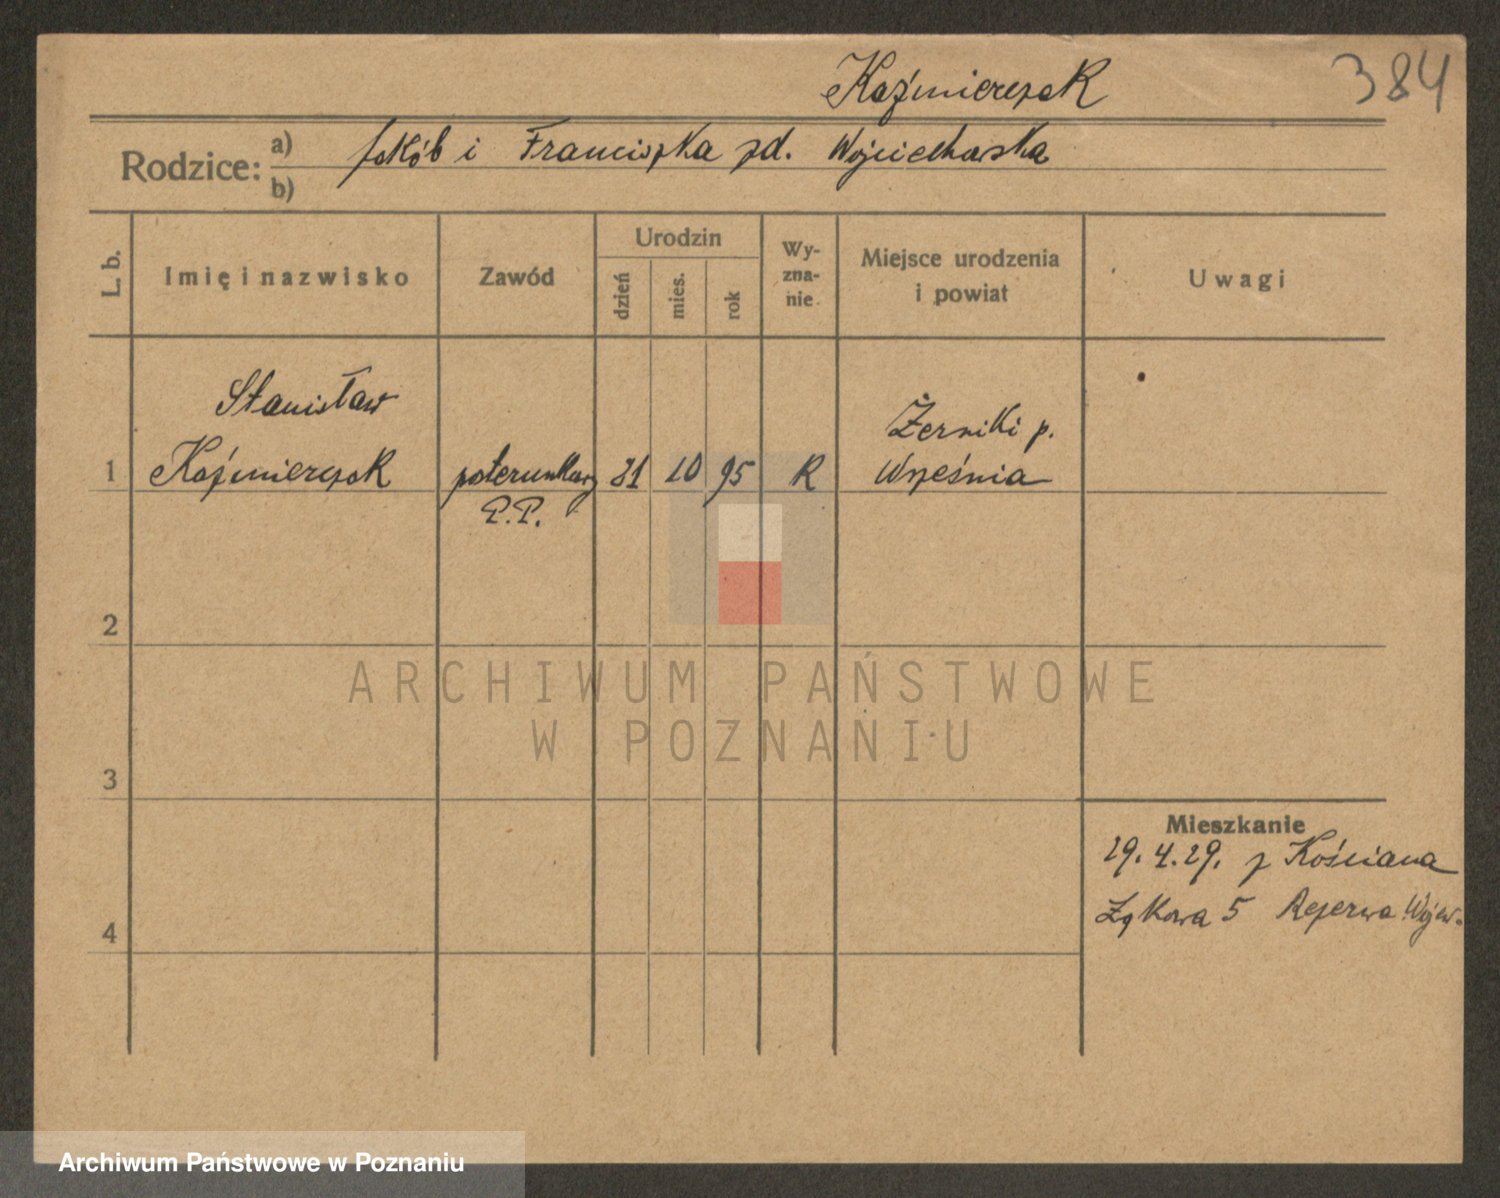 Kaźmierczak 384
Rodzice: a) Jakób i Franciszka zd. Wojciechowska
b)
L. b. Imię i nazwisko Zawód Urodzin dzień mies. rok Wy-zna-nie Miejsce urodzenia i powiat Uwagi
Stanisław
Żerniki p.
1 Kaźmierczak posterunkowy 31 10 95 R Września
P.P.
2
ARCHIWUM PAŃSTWOWE
W POZNANIU
3
Mieszkanie
29.4.29. z Kościana
4 Łąkowa 5 Rezerwa Wojew.
Archiwum Państwowe w Poznaniu